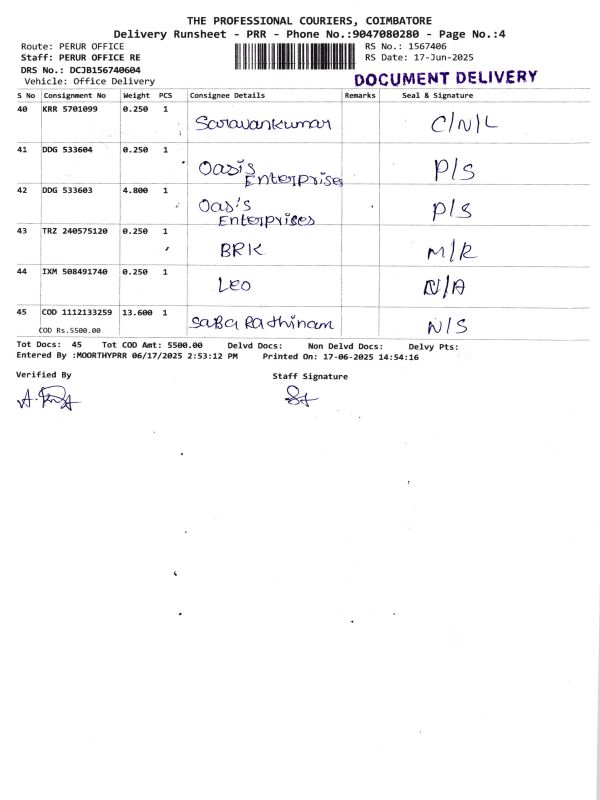 THE PROFESSIONAL COURIERS, COIMBATORE
Delivery Runsheet - PRR - Phone No.:9047080280 - Page No.:4
Route: PERUR OFFICE RS No.: 1567406
Staff: PERUR OFFICE RE RS Date: 17-Jun-2025
DRS No.: DCJB156740604
Vehicle: Office Delivery DOCUMENT DELIVERY
S No Consignment No Weight PCS Consignee Details Remarks Seal & Signature
40 KRR 5701099 0.250 1
Saravankumar C/N/L
41 DDG 533604 0.250 1
Oasis P/S
Enterprises
42 DDG 533603 4.800 1
Oasis P/S
Enterprises
43 TRZ 240575120 0.250 1
BRK M/R
44 IXM 508491740 0.250 1
Leo N/A
45 COD 1112133259 13.600 1
SaBa Rathinam N/S
COD Rs.5500.00
Tot Docs: 45 Tot COD Amt: 5500.00 Delvd Docs: Non Delvd Docs: Delvy Pts:
Entered By :MOORTHYPRR 06/17/2025 2:53:12 PM Printed On: 17-06-2025 14:54:16
Verified By Staff Signature